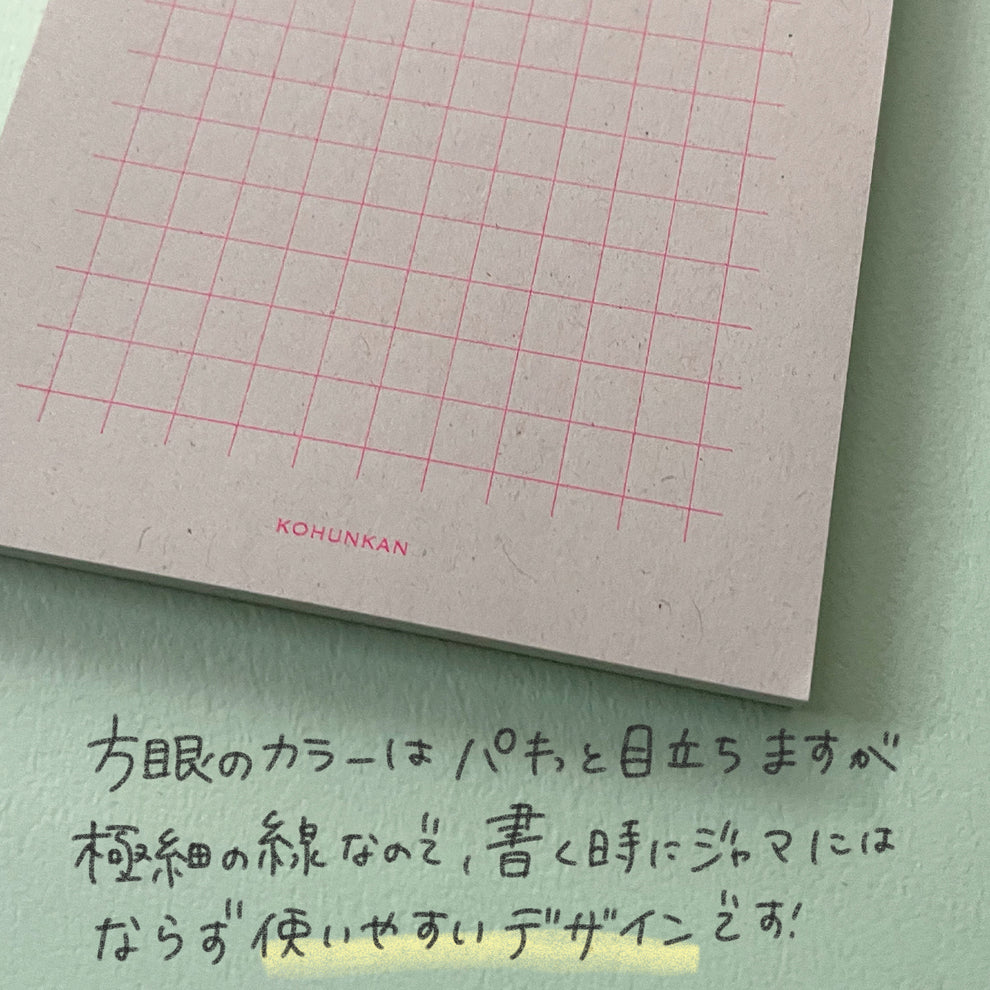 KOHUNKAN
方眼のカラーはパキッと目立ちますが
極細の線なので、書く時にジャマには
ならず使いやすいデザインです!